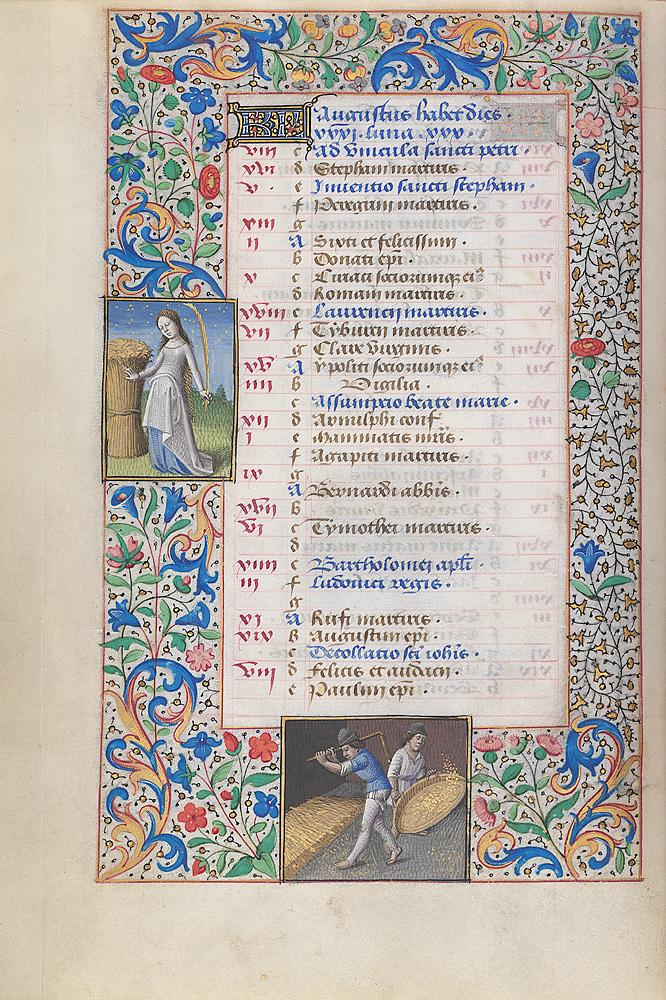 KL Augustus habet dies
xxxi. luna. xxx.
viii c Ad vincula sancti petri.
xvi d Stephani martiris.
v. e Inventio sancti stephani.
f Peregrini martiris.
xiii g
ii A Sixti et felicissimi.
b Donati epi.
x c Ciriaci sociorumque ei9
d Romani martiris.
xviii e Laurencii martiris.
vii f Tyburcii martiris.
g Clare virginis.
xv A Ypoliti sociorumque ei9
iiii b Vigilia.
c Assumptio beate marie.
xii d Arnulphi conf
i e Mammatis mris.
f Agapiti martiris.
ix g
A Bernardi abbis.
xvii b
vi c Tymothei martiris.
d
xiiii e Bartholomei apli
iii f Ludovici regis.
g
xi A Rufi martiris.
xix b Augustini epi.
c Decollatio sci iohis.
viii d Felicis et audacti.
e Paulini epi.